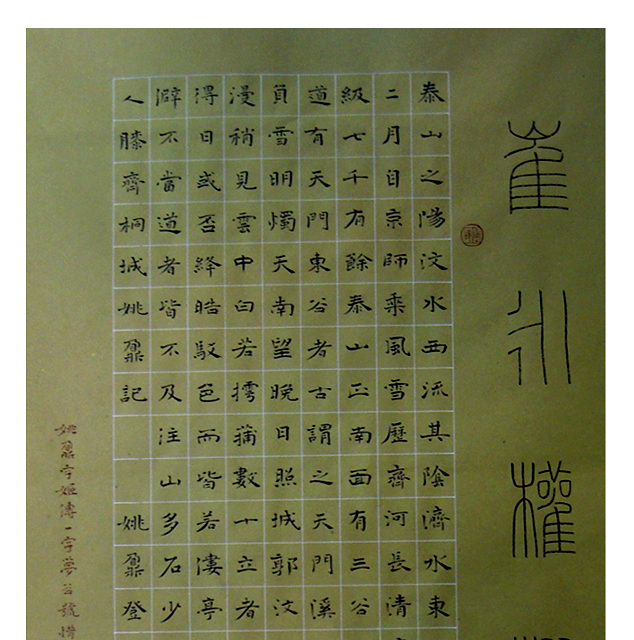 崔
權
泰山之陽汶水西流其陰濟水東
二月自京師乘風雪歷齊河長清
級七千有餘泰山正南面有三谷
道有天門東谷者古謂之天門溪
負雪明燭天南望晚日照城郭汶
漫稍見雲中白若摴蒱數十立者
得日或否絳皓駁色而皆若僂亭
僻不當道者皆不及往山多石少
人膝齊桐城姚鼐記 姚鼐登
姚鼐字姬傳一字夢谷號惜